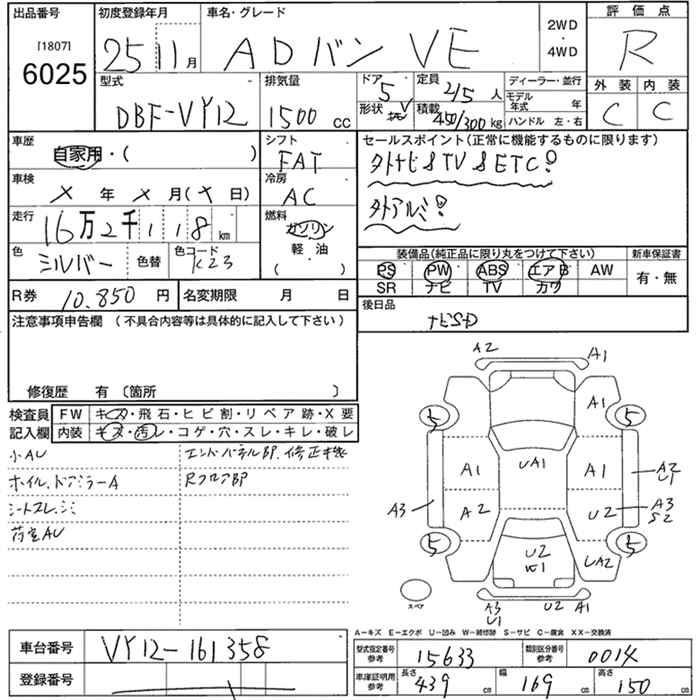 出品番号 初度登録年月 車名・グレード 2WD・4WD 評価点
[1807] 6025 25 11月 ADバン VE R
型式 排気量 ドア 5 定員 2/5 人 ディーラー・並行 外装 内装
DBF-VY12 1500 cc 形状 V 積載 450/300kg モデル年式 年 C C
ハンドル 左・右
車歴 自家用・( ) シフト FAT セールスポイント(正常に機能するものに限ります)
車検 X 年 X 月(X 日) 冷房 AC 外ナビ&TV&ETC!
走行 16万2千118km 燃料 ガソリン・軽油 ( ) 外アルミ!
色 シルバー 色替 色コード K23
装備品(純正品に限り丸をつけて下さい) 新車保証書
PS PW ABS エアB AW 有・無
SR ナビ TV カワ
R券 10.850 円 名変期限 月 日 後日品
ナビSD
注意事項申告欄 (不具合内容等は具体的に記入して下さい)
修復歴 有 〔箇所 〕
検査員記入欄 FW キズ・飛石・ヒビ割・リペア跡・X要
内装 キズ・汚レ・コゲ・穴・スレ・キレ・破レ
小AU エンドパネルBP.修正機
ホイル.ドアミラーA RフロアBP
シートスレ.シミ
荷室AU
A2 A1
5 A1 5
A1 UA1 A1 A2 U1
A3 A2 U2 A3 S2
5 U2 W1 UA2 5
スペア A3 U1 U2 A1
A-キズ E-エクボ U-凹み W-補修跡 S-サビ C-腐食 XX-交換済
車台番号 VY12-161358 型式指定番号 参考 15633 類別区分番号 参考 0014
登録番号 車庫証明用 参考 長さ 439 cm 幅 169 cm 高さ 150 cm